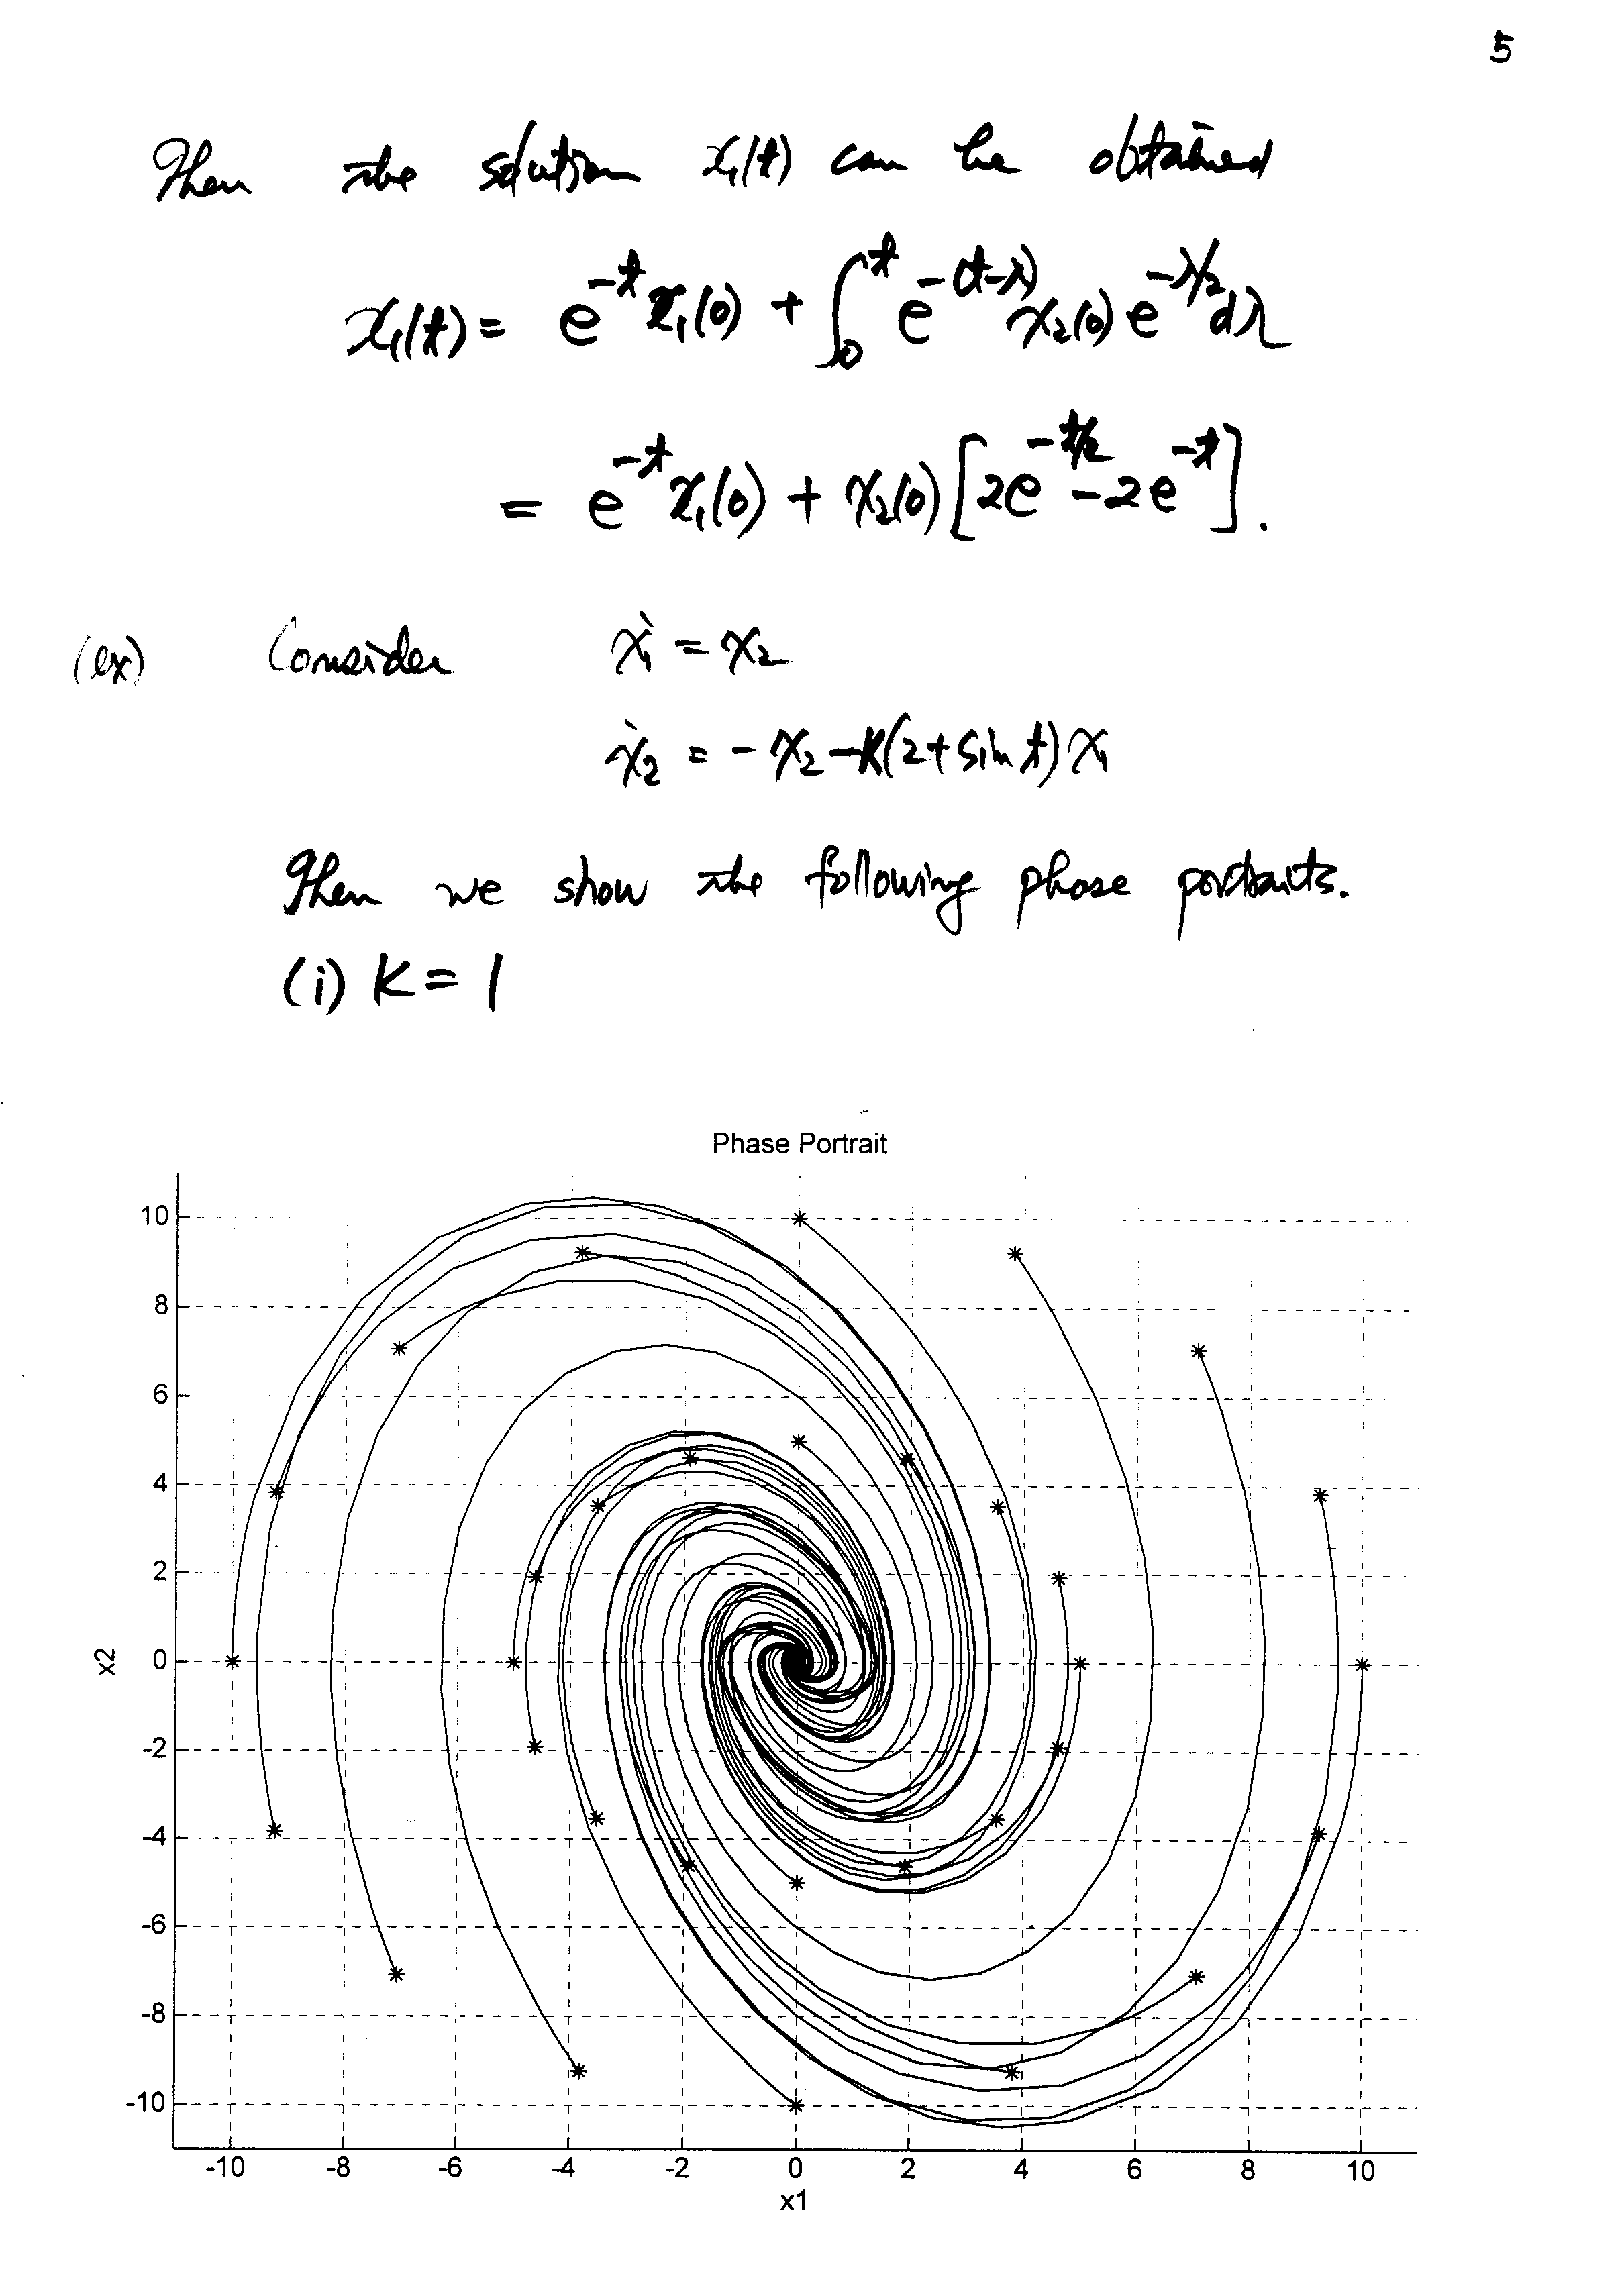 5
Then the solution x₁(t) can be obtained
x₁(t) = e^{-t} x₁(0) + ∫₀^t e^{-(t-λ)} x₂(0) e^{-λ/2} dλ
= e^{-t} x₁(0) + x₂(0) [2e^{-t/2} - 2e^{-t}].
(ex) Consider ẋ₁ = x₂
ẋ₂ = - x₂ - K(2 + sin t) x₁
Then we show the following phase portraits.
(i) K = 1
Phase Portrait
10
8
6
4
2
0
-2
-4
-6
-8
-10
x2
-10 -8 -6 -4 -2 0 2 4 6 8 10
x1